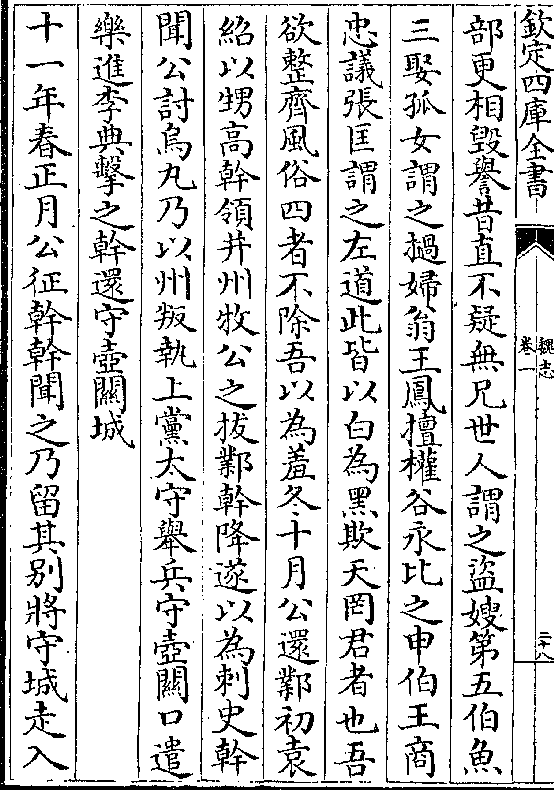 欽定四庫全書
魏志
卷一
二十八
部更相毀譽昔直不疑無兄世人謂之盜嫂第五伯魚
三娶孤女謂之撾婦翁王鳳擅權谷永比之申伯王商
忠議張匡謂之左道此皆以白為黑欺天罔君者也吾
欲整齊風俗四者不除吾以為羞冬十月公還鄴初袁
紹以甥高幹領并州牧公之拔鄴幹降遂以為刺史幹
聞公討烏丸乃以州叛執上黨太守舉兵守壺關口遣
樂進李典擊之幹還守壺關城
十一年春正月公征幹幹聞之乃留其别將守城走入